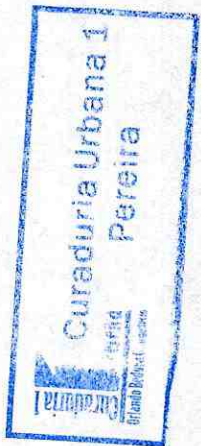 Curaduria Urbana 1
Pereira
Curaduria 1
Orlando